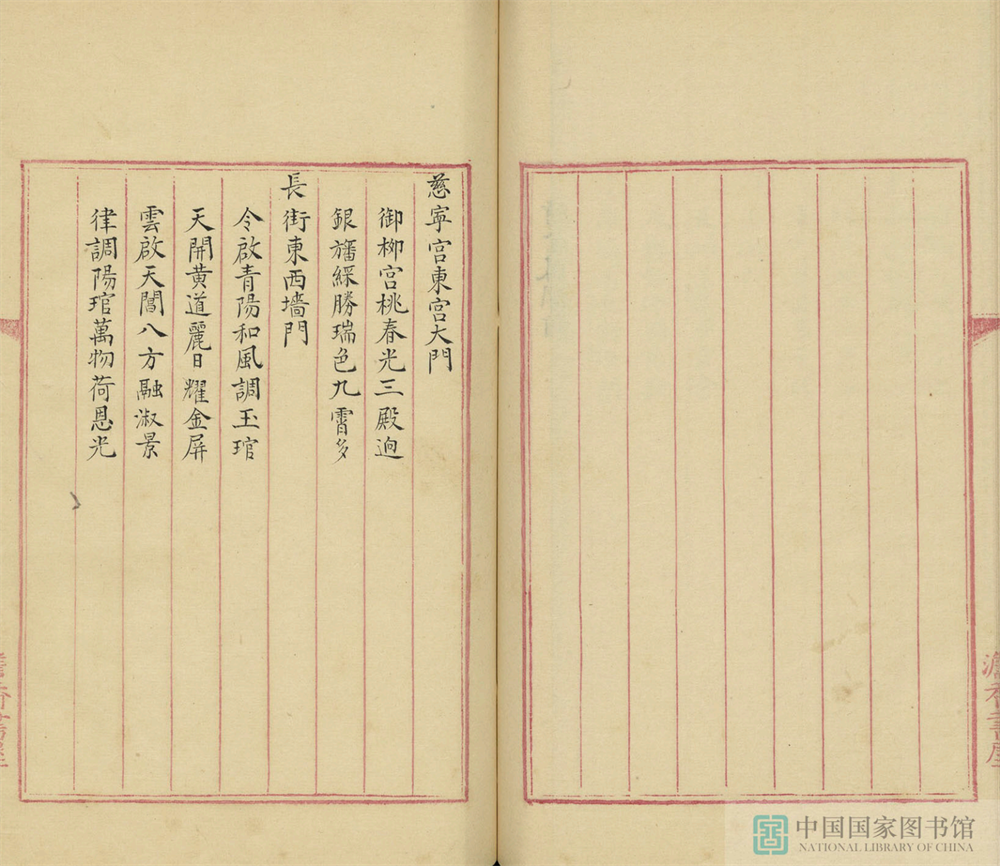 慈寧宮東宮大門
御柳宮桃春光三殿迥
銀旛綵勝瑞色九霄多
長街東西墻門
令啟青陽和風調玉琯
天開黃道麗日耀金屏
雲啟天閶八方融淑景
律調陽琯萬物荷恩光
中国国家图书馆
NATIONAL LIBRARY OF CHINA